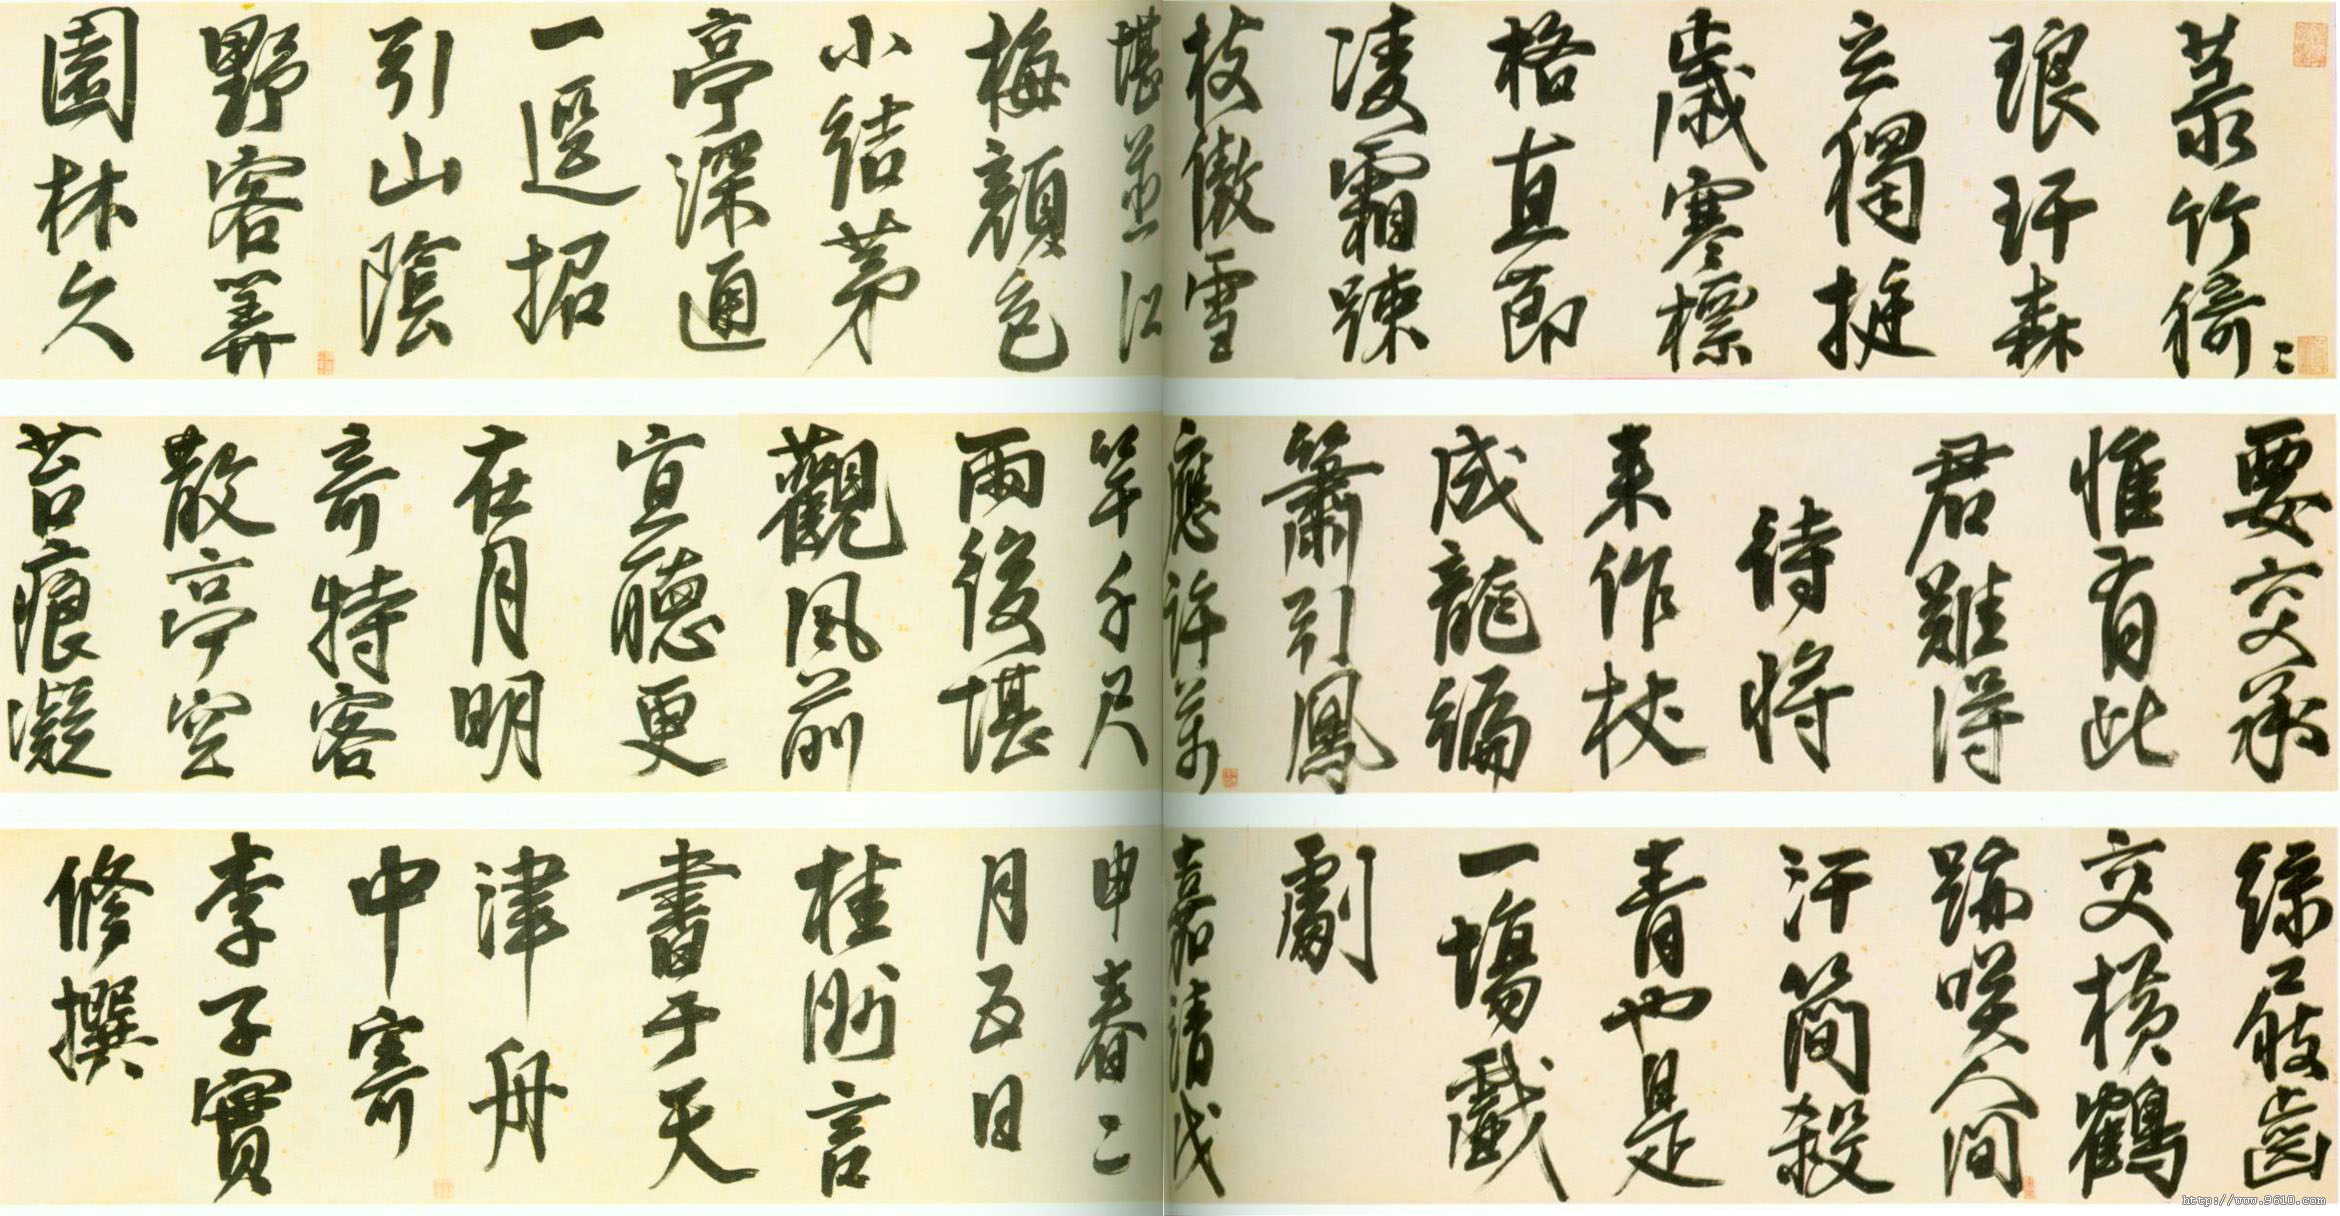 菉竹猗〻
琅玕森
立獨挺
歲寒標
格直節
凌霜踈
枝傲雪
堪並江
梅顏色
小結茅
亭深通
一逕招
引山陰
野客算
園林久
要交承
惟有此
君難得
待將
来作杖
成龍編
簫引鳳
應許萬
竿千尺
雨後堪
觀風前
宜聽更
在月明
奇特客
散亭空
苔痕凝
綠屐齒
交橫鶴
跡咲人間
汗簡殺
青也是
一場戲
劇
嘉靖戊
申春二
月五日
桂洲言
書于天
津舟
中寄
李子實
修撰
http://www.9610.com